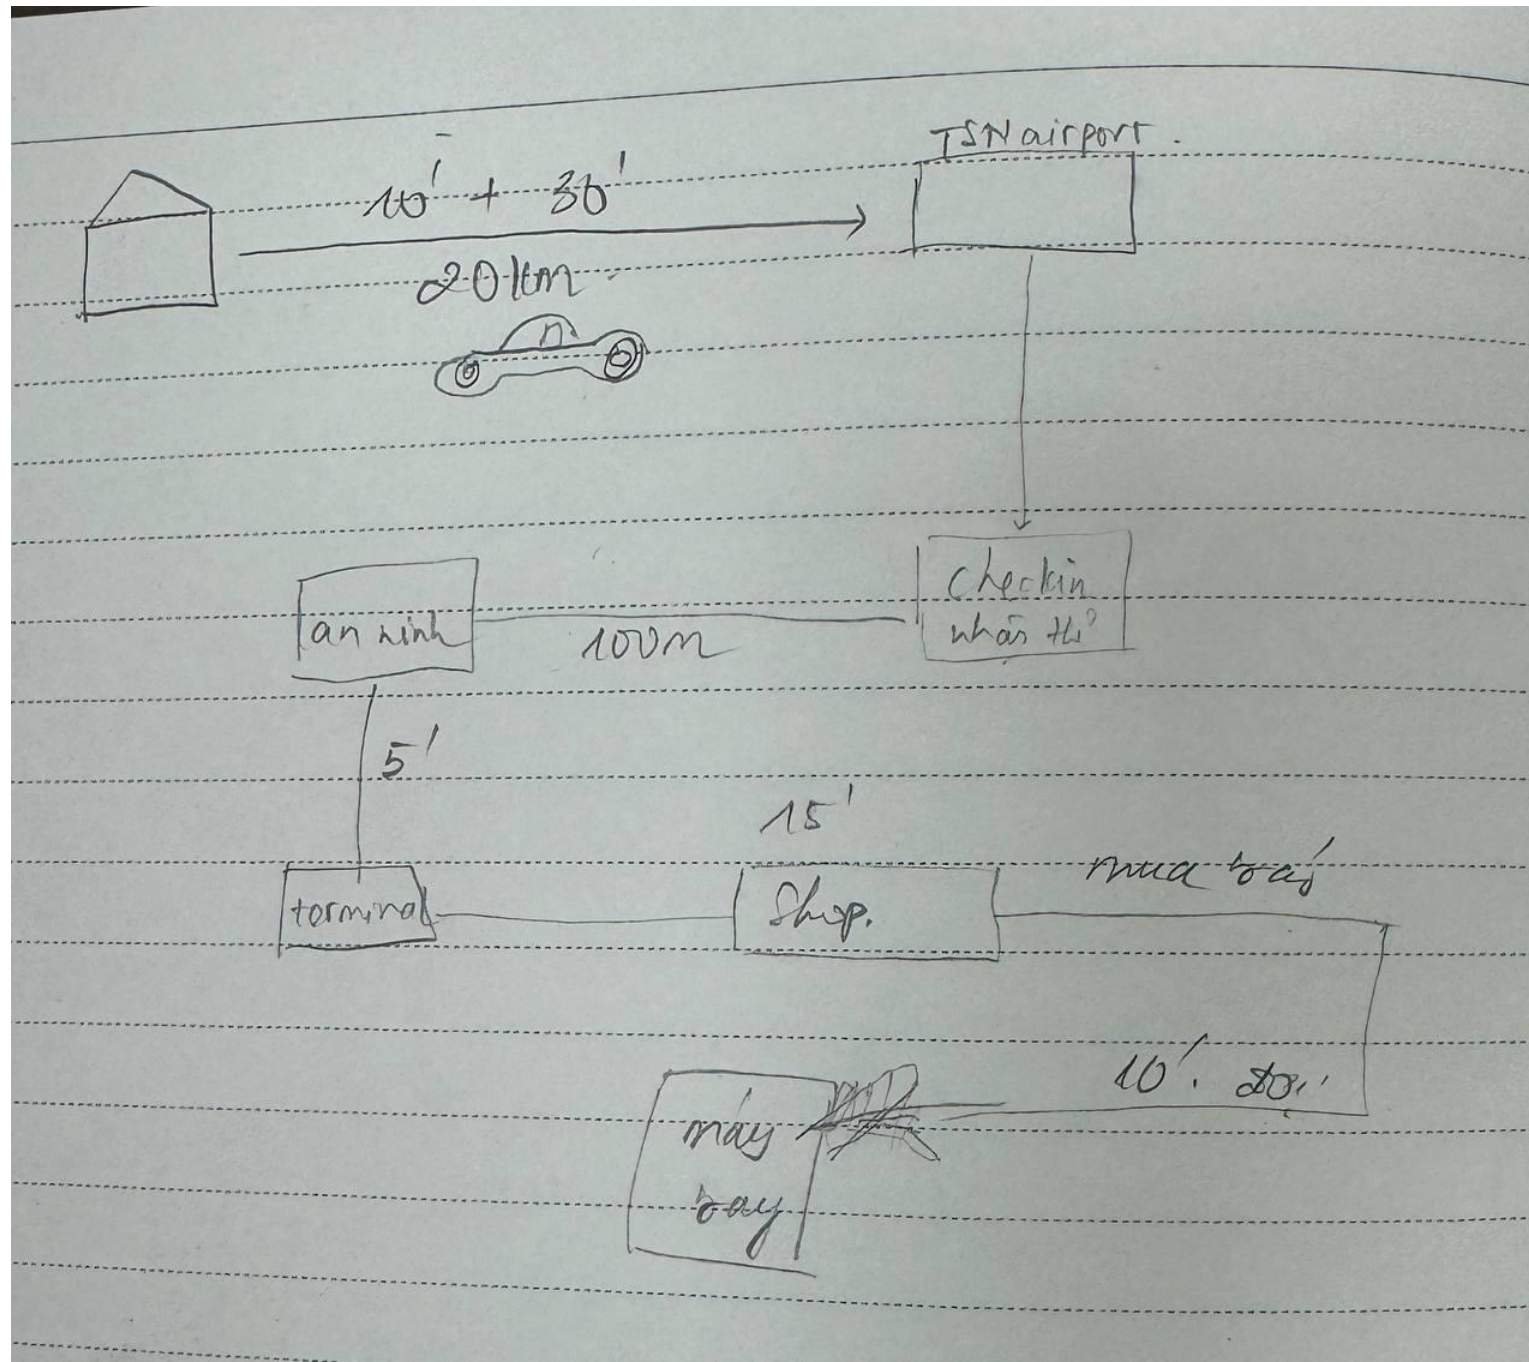 TSN airport.
10' + 30'
20 km
checkin
nhận thẻ
an ninh
100m
5'
15'
terminal
Shop.
mua
10'.
máy
bay